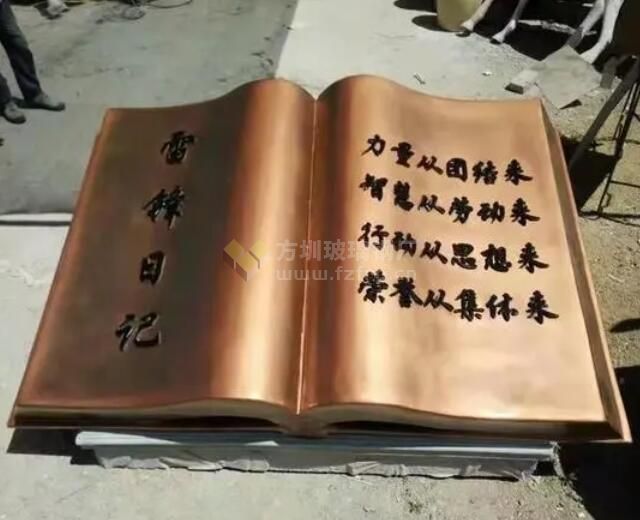 雷锋日记
力量从团结来
智慧从劳动来
行动从思想来
荣誉从集体来
方圳玻璃钢厂
www.fzfrp.cn